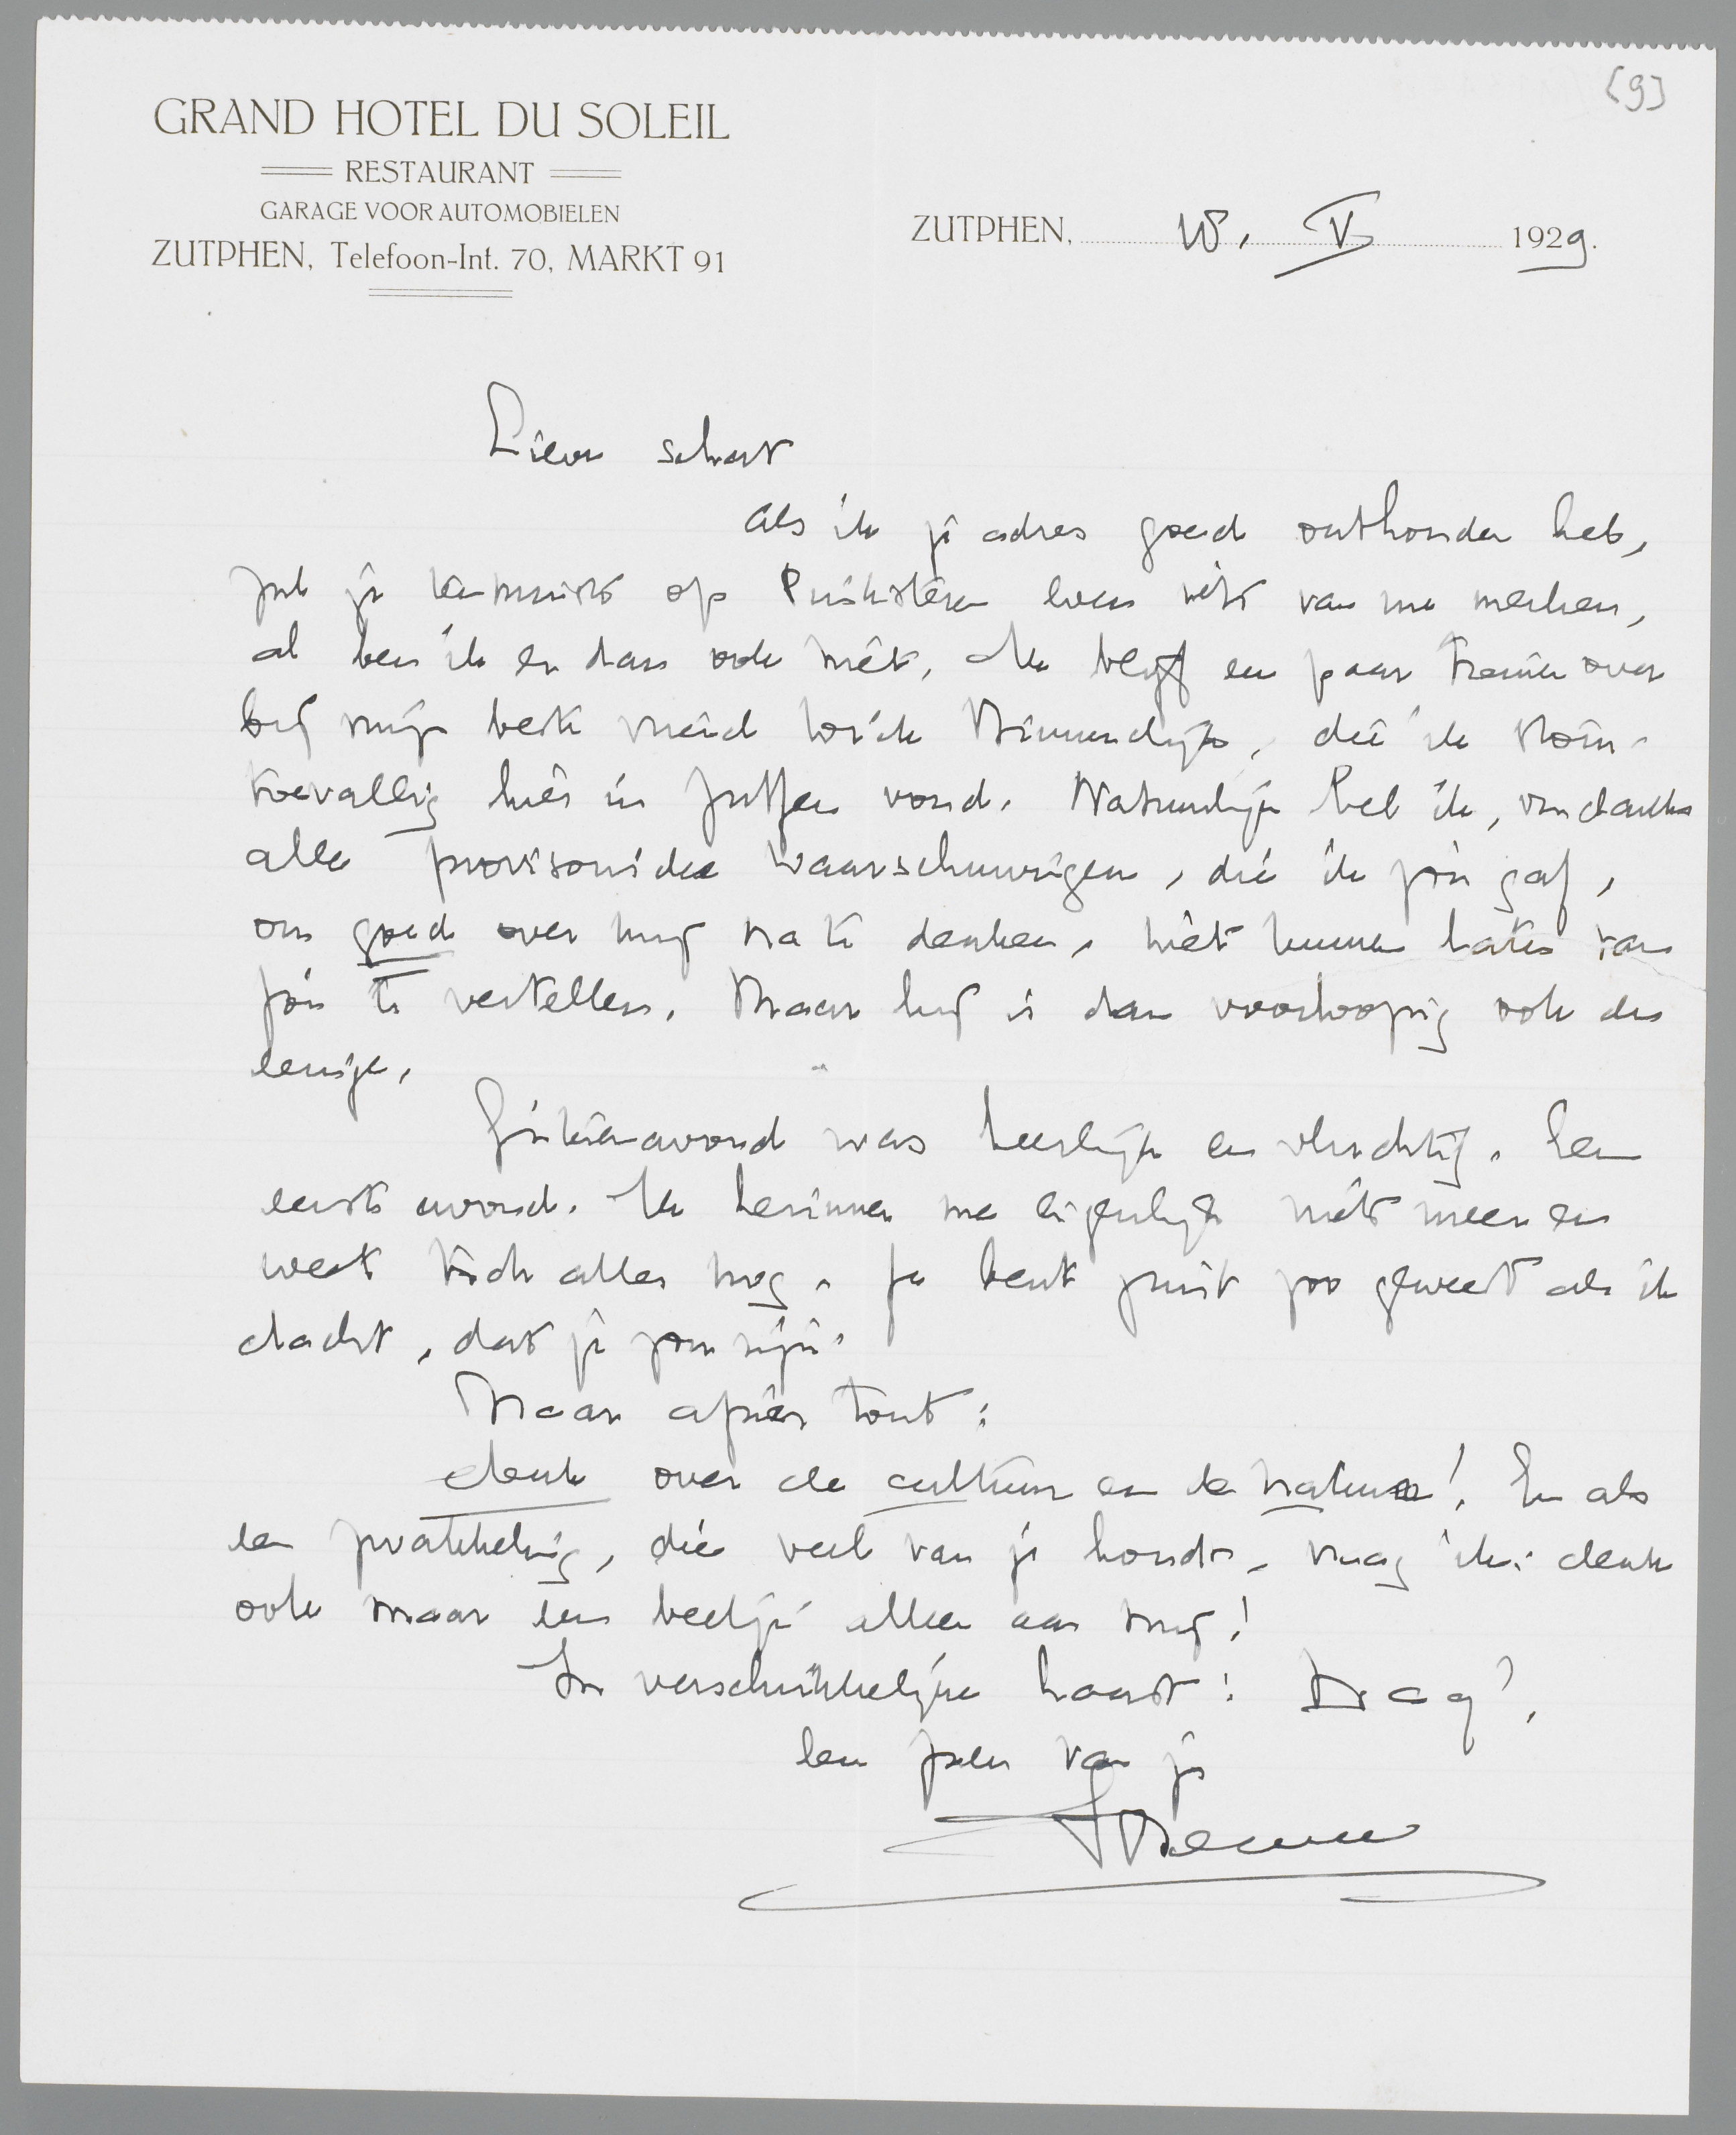 [9]
GRAND HOTEL DU SOLEIL
RESTAURANT
GARAGE VOOR AUTOMOBIELEN
ZUTPHEN, Telefoon-Int. 70, MARKT 91
ZUTPHEN, 18. V 1929.
Lieve schat
als ik je adres goed onthouden heb,
zul je tenminste op Pinksteren even iets van me merken,
al ben ik er dan ook niet. Ik blijf een paar treinen over
bij mijn beste vriend die ik
toevallig hier in Zutfen vond. Natuurlijk heb ik, ondanks
alle waarschuwingen, die ik jou gaf,
om goed over mij na te denken, niet kunnen laten van
jou te vertellen. Maar hij is dan voorloopig ook de
eenige.
Gisterenavond was heerlijk en vluchtig. Een
eerste avond. Ik herinner me eigenlijk niets meer en
weet toch alles nog. Je bent juist zoo geweest als ik
dacht, dat je zou zijn.
Maar après tout:
denk over de cultuur en de natuur! En als
een die veel van je houdt, vraag ik: denk
ook maar een beetje alleen aan mij!
In verschrikkelijke haast: Dag!,
een zoen van je